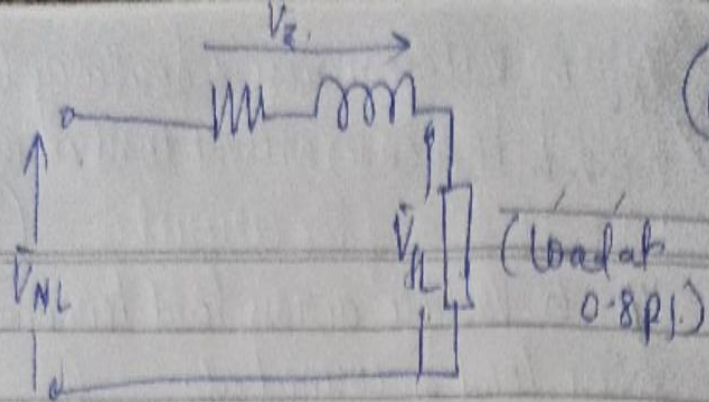 V_Z.
V_NL
V_fL
(Load at
0.8 p.f.)